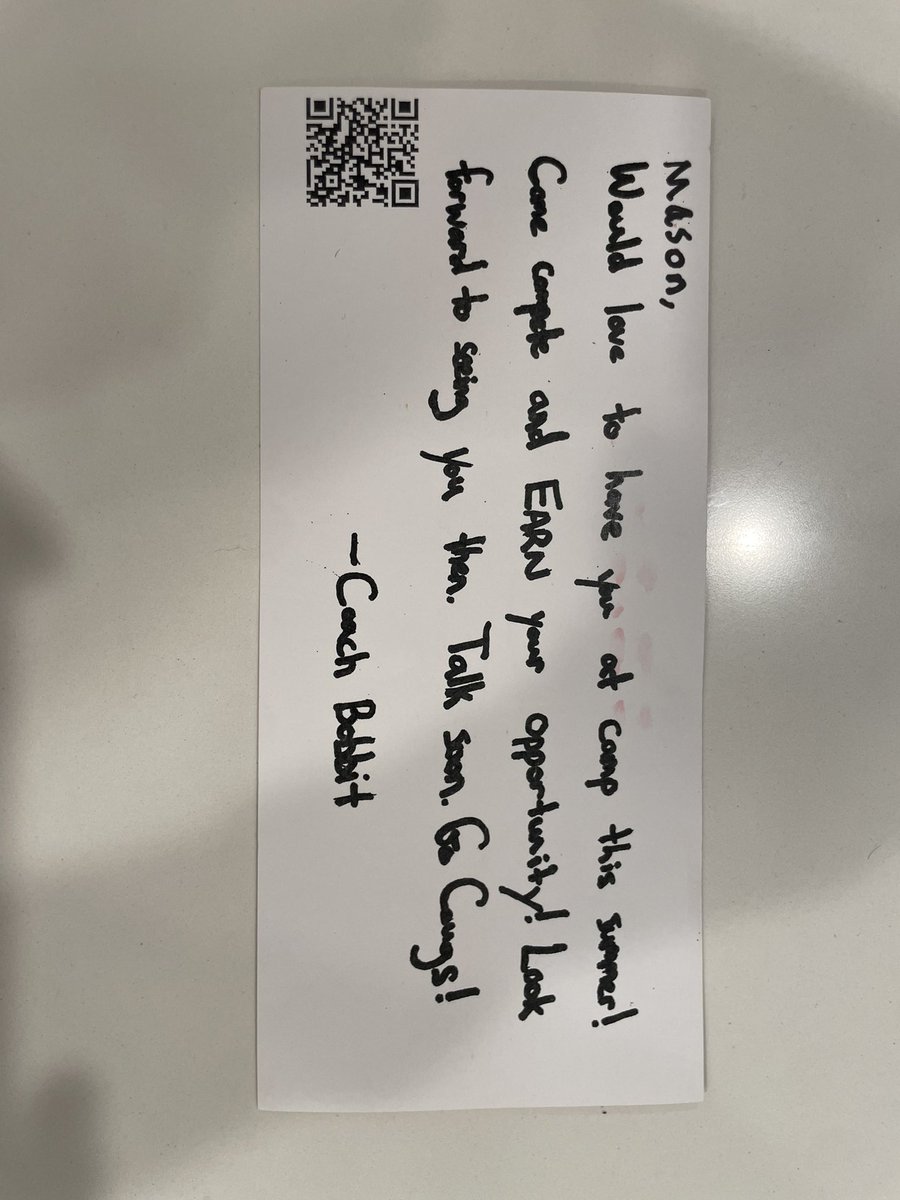 Mason,
Would love to have you at camp this summer!
Come compete and EARN your opportunity! Look
forward to seeing you then. Talk soon. Go Cougs!
-Coach Bobbit